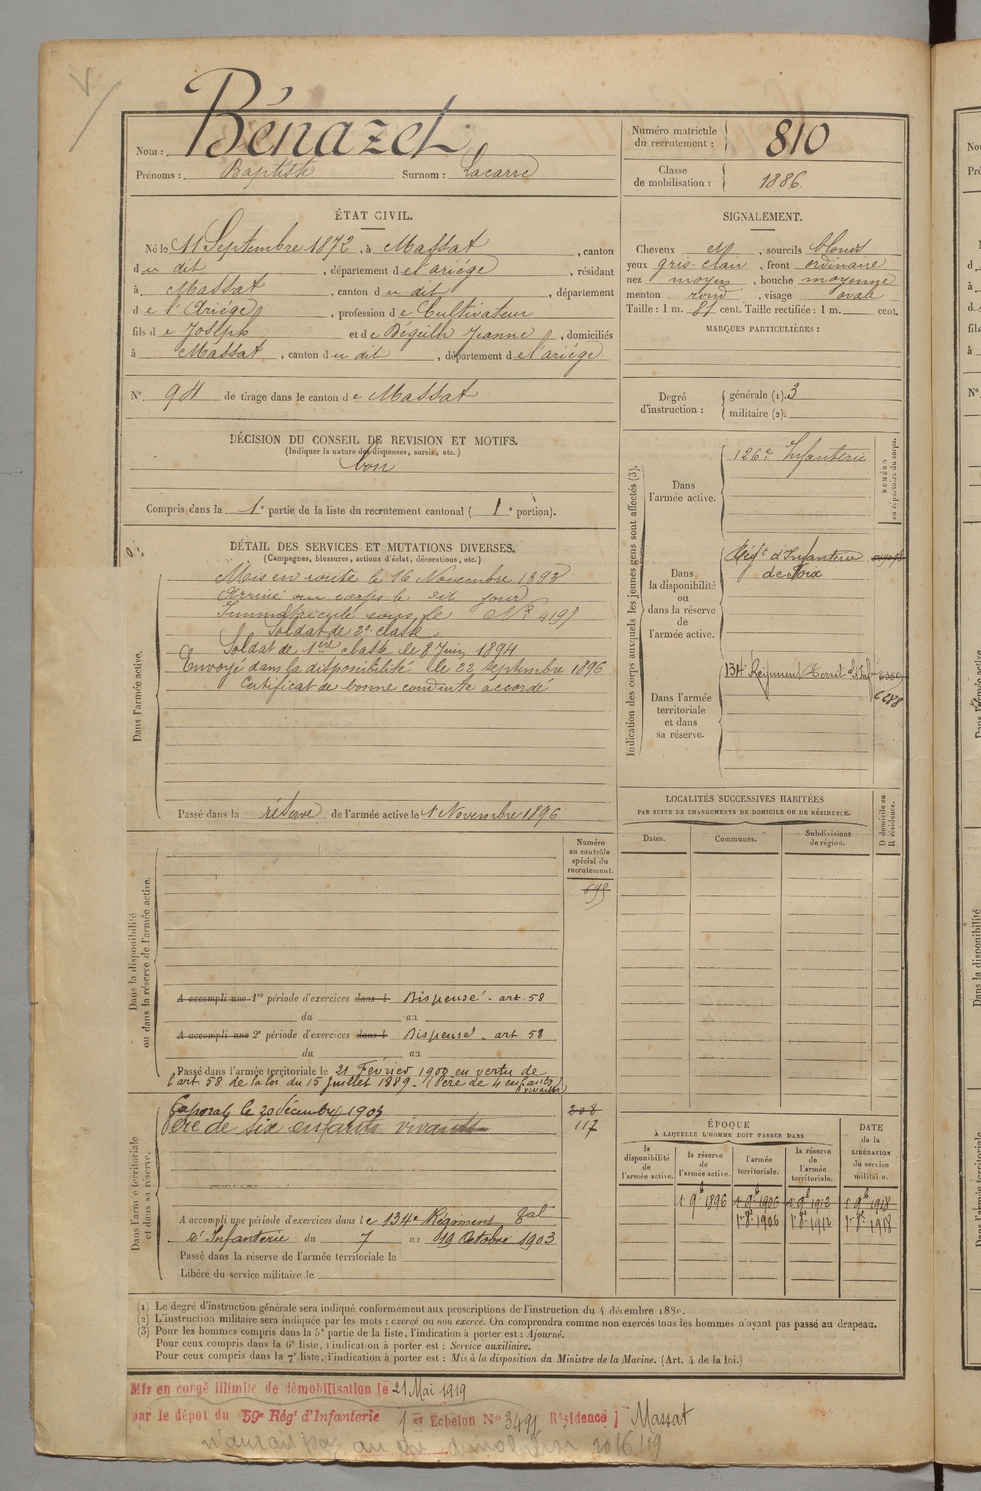 Nom : Bénazet
Prénoms : Baptiste Surnom : Lacarre
Numéro matricule du recrutement : 810
Classe de mobilisation : 1886.
ÉTAT CIVIL.
Né le 11 Septembre 1872, à Massat, canton
du dit, département de l'ariège, résidant
à Massat, canton du dit, département
de l'Ariège, profession de Cultivateur
fils de Joseph et de Béguilh Jeanne, domiciliés
à Massat, canton du dit, département de l'ariège
N° 94 de tirage dans le canton de Massat
SIGNALEMENT.
Cheveux et, sourcils blonds
yeux gris-clair, front ordinaire
nez moyen, bouche moyenne
menton rond, visage ovale
Taille : 1 m. cent. Taille rectifiée : 1 m. cent.
MARQUES PARTICULIÈRES :
Degré d'instruction : générale (1). 3
militaire (2).
DÉCISION DU CONSEIL DE REVISION ET MOTIFS.
(Indiquer la nature des dispenses, sursis, etc.)
bon
Compris dans la 1e partie de la liste du recrutement cantonal ( 1e portion).
DÉTAIL DES SERVICES ET MUTATIONS DIVERSES.
(Campagnes, blessures, actions d'éclat, décorations, etc.)
Dans l'armée active.
Mis en route le 16 Novembre 1893
Arrivé au corps le dit jour
Immatriculé sous le N° 4197
Soldat de 2e classe
Soldat de 1ere classe le 8 Juin 1894
Envoyé dans la disponibilité le 22 septembre 1896
Certificat de bonne conduite accordé
Passé dans la réserve de l'armée active le 1r Novembre 1896
Indication des corps auxquels les jeunes gens sont affectés (3).
NUMÉRO au répertoire du corps.
Dans l'armée active.
126e Infanterie
Dans la disponibilité ou dans la réserve de l'armée active.
Régt d'Infanterie
de Foix
Dans l'armée territoriale et dans sa réserve.
134e Régiment Territ. d'Inf.
LOCALITÉS SUCCESSIVES HABITÉES
PAR SUITE DE CHANGEMENTS DE DOMICILE OU DE RÉSIDENCE.
Dates. Communes. Subdivisions de région. D domicile ou R résidence.
Dans la disponibilité ou dans la réserve de l'armée active.
Numéro au contrôle spécial du recrutement.
A accompli une 1re période d'exercices dans l Dispensé. art. 58
du au
A accompli une 2e période d'exercices dans l Dispensé. art 58
du au
Passé dans l'armée territoriale le 21 Février 1900 en vertu de
l'art. 58 de la loi du 15 juillet 1889. (Père de 4 enfants vivants)
Dans l'armée territoriale et dans sa réserve.
Caporal le 20 décembre 1903
208
Père de six enfants vivants
117
A accompli une période d'exercices dans le 134e Régiment tal
d'Infanterie du 7 au 19 Octobre 1903
Passé dans la réserve de l'armée territoriale le
Libéré du service militaire le
ÉPOQUE
À LAQUELLE L'HOMME DOIT PASSER DANS
DATE de la LIBÉRATION du service militaire.
la disponibilité de l'armée active. la réserve de l'armée active. l'armée territoriale. la réserve de l'armée territoriale.
1r 9b 1896 1r 9b 1906 1r 9b 1912 1r 9b 1918
1r 8b 1906 1r 8b 1912 1r 8b 1918
(1) Le degré d'instruction générale sera indiqué conformément aux prescriptions de l'instruction du 4 décembre 1889.
(2) L'instruction militaire sera indiquée par les mots : exercé ou non exercé. On comprendra comme non exercés tous les hommes n'ayant pas passé au drapeau.
(3) Pour les hommes compris dans la 5e partie de la liste, l'indication à porter est : Ajourné.
Pour ceux compris dans la 6e liste, l'indication à porter est : Service auxiliaire.
Pour ceux compris dans la 7e liste, l'indication à porter est : Mis à la disposition du Ministre de la Marine. (Art. 4 de la loi.)
Mis en congé illimité de démobilisation le 21 Mai 1919
par le dépôt du 59e Régt d'Infanterie 1er Echelon N° 3491 Résidence : Massat